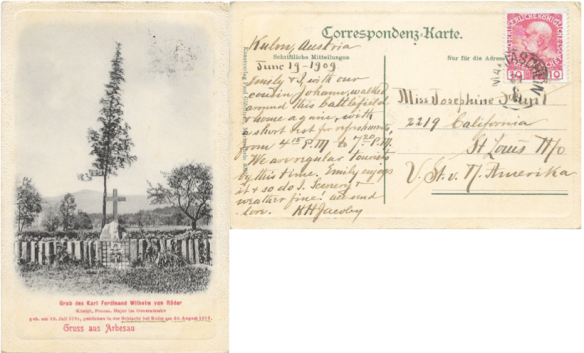 Grab des Karl Ferdinand Wilhelm von Röder
Königl. Preuss. Major im Generalstabe
geb. am 29. Juli 1781, geblieben in der Schlacht bei Kulm am 30. August 1813.
Gruss aus Arbesau
Correspondenz-Karte.
Schriftliche Mitteilungen
Nur für die Adresse
Kulm, Austria
June 19-1909.
Emily & I, with our
cousin Johann, walked
around this battlefield
& home again, with
a short rest for refreshments,
from 4 15 P.M. to 7 20 P.M.
We are regular Tourists
by this time. Emily enjoys
it & so do I. Scenery &
weather fine. all send
love. H H Jacoby
Miss Josephine
2219 California
St Louis Mo
V. St. v. N. Amerika
10